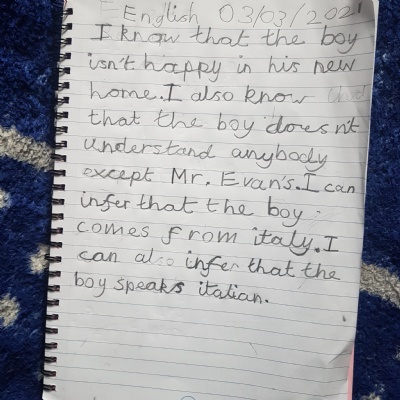 English 03/03/2021
I know that the boy
isn't happy in his new
home. I also know
that the boy doesn't
understand anybody
except Mr. Evan's. I can
infer that the boy
comes from italy. I
can also infer that the
boy speaks italian.